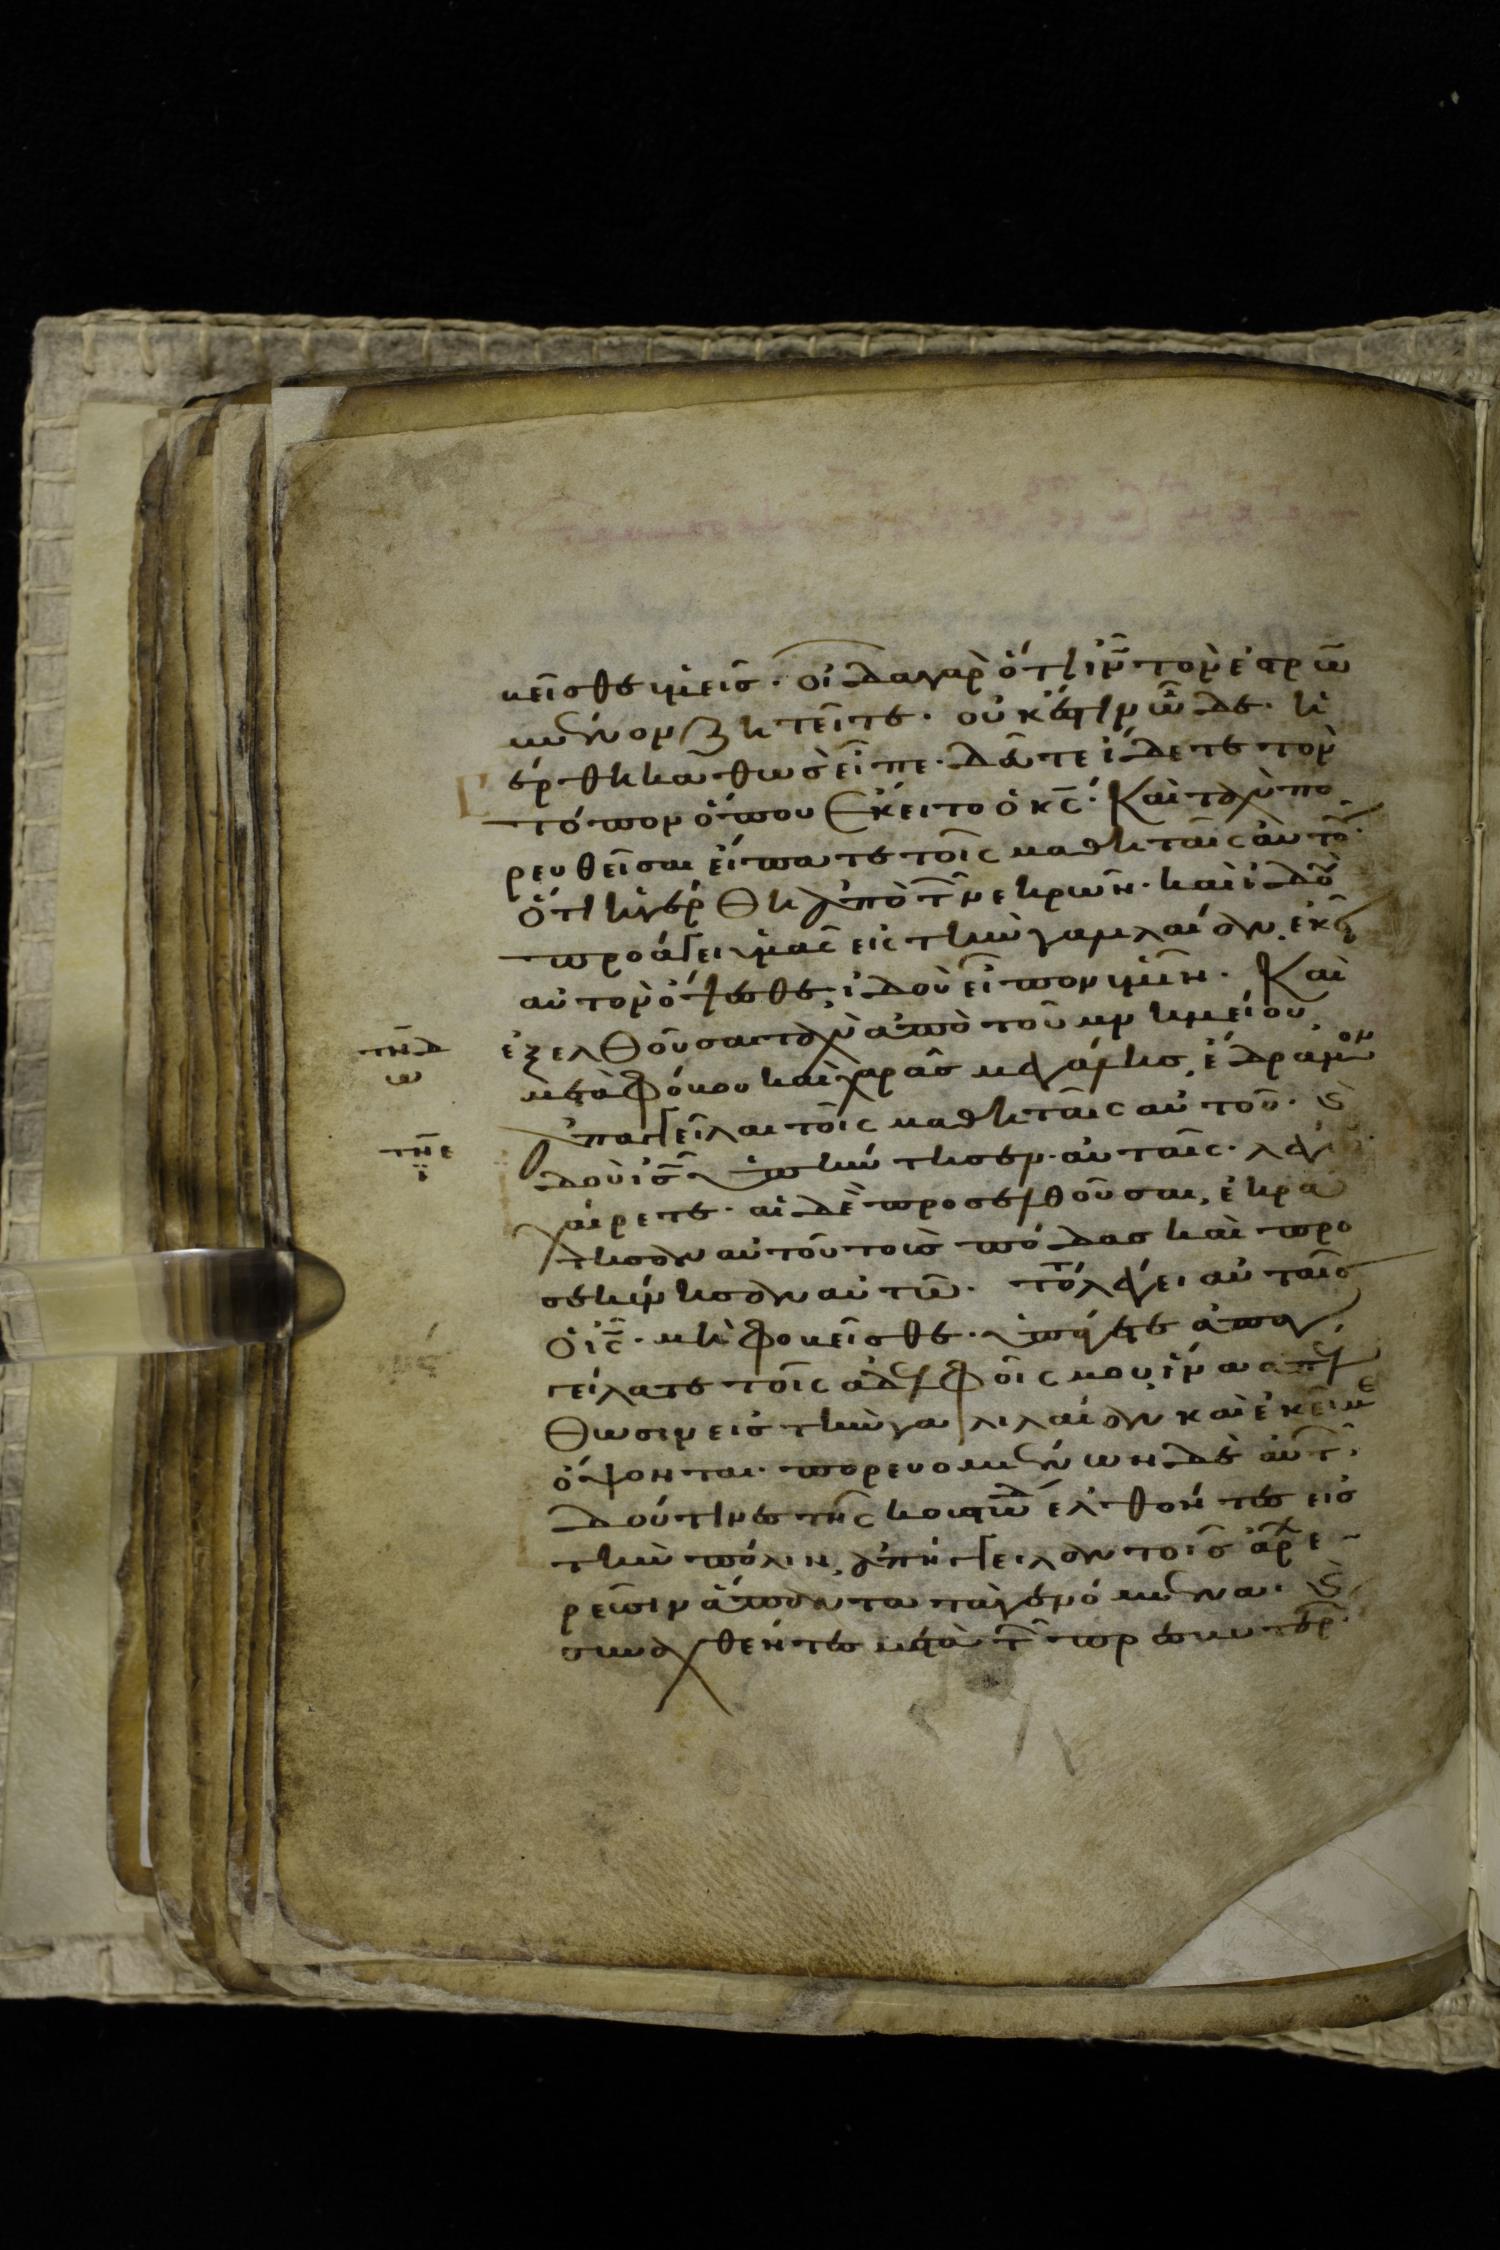 βεῖσθε ὑμεῖς· οἶδα γὰρ ὅτι ιν τὸν ἐσταυρω
μένον ζητεῖτε· οὐκ ἔστιν ὧδε· ἠ
γέρθη καθὼς εἶπε· δεῦτε ἴδετε τὸν
τόπον ὅπου ἔκειτο ὁ κς· Καὶ ταχὺ πο
ρευθεῖσαι εἴπατε τοῖς μαθηταῖς αὐτοῦ·
ὅτι ἠγέρθη ἀπὸ τῶν νεκρῶν· καὶ ἰδοὺ
προάγει ὑμᾶς εἰς τὴν γαλιλαίαν, ἐκεῖ
αὐτὸν ὄψεσθε, ἰδοὺ εἶπον ὑμῖν· Καὶ
ἐξελθοῦσαι ταχὺ ἀπὸ τοῦ μνημείου,
μετὰ φόβου καὶ χαρᾶς μεγάλης, ἔδραμον
ἀπαγγεῖλαι τοῖς μαθηταῖς αὐτοῦ· καὶ
ἰδοὺ ις ὑπήντησεν αὐταῖς· λέγων
χαίρετε· αἱ δὲ προσελθοῦσαι, ἐκρά
τησαν αὐτοῦ τοὺς πόδας καὶ προ
σεκύνησαν αὐτῷ· τότε λέγει αὐταῖς
ὁ ις· μὴ φοβεῖσθε· ὑπάγετε ἀπαγ
γείλατε τοῖς ἀδελφοῖς μου, ἵνα ἀπέλ
θωσιν εἰς τὴν γαλιλαίαν καὶ ἐκεῖ με
ὄψονται· πορευομένων δὲ αὐτῶν·
ἰδού τινες τῆς κουστωδίας ἐλθόντες εἰς
τὴν πόλιν, ἀπήγγειλαν τοῖς ἀρχιε
ρεῦσιν ἅπαντα τὰ γενόμενα· καὶ
συναχθέντες μετὰ τῶν πρεσβυτέρων·
τνδ
ω
τνε
ι